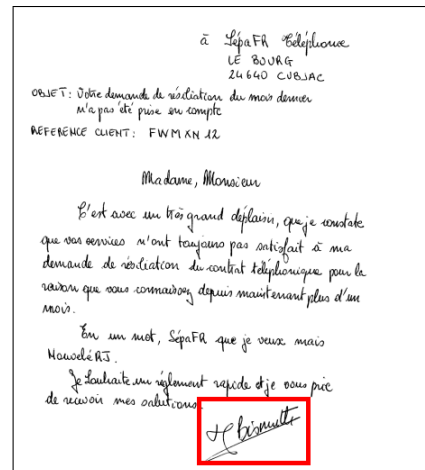 à SépaFR Téléphone
LE BOURG
24640 CUBJAC
OBJET: Votre demande de résiliation du mois dernier
n'a pas été prise en compte
REFERENCE CLIENT: FWMXN 12
Madame, Monsieur
C'est avec un très grand déplaisir, que je constate
que vos services n'ont toujours pas satisfait à ma
demande de résiliation du contrat téléphonique pour la
raison que vous connaissez depuis maintenant plus d'un
mois.
En un mot, SépaFR que je veux mais
NouveléRJ.
Je souhaite un règlement rapide et je vous prie
de recevoir mes salutations.